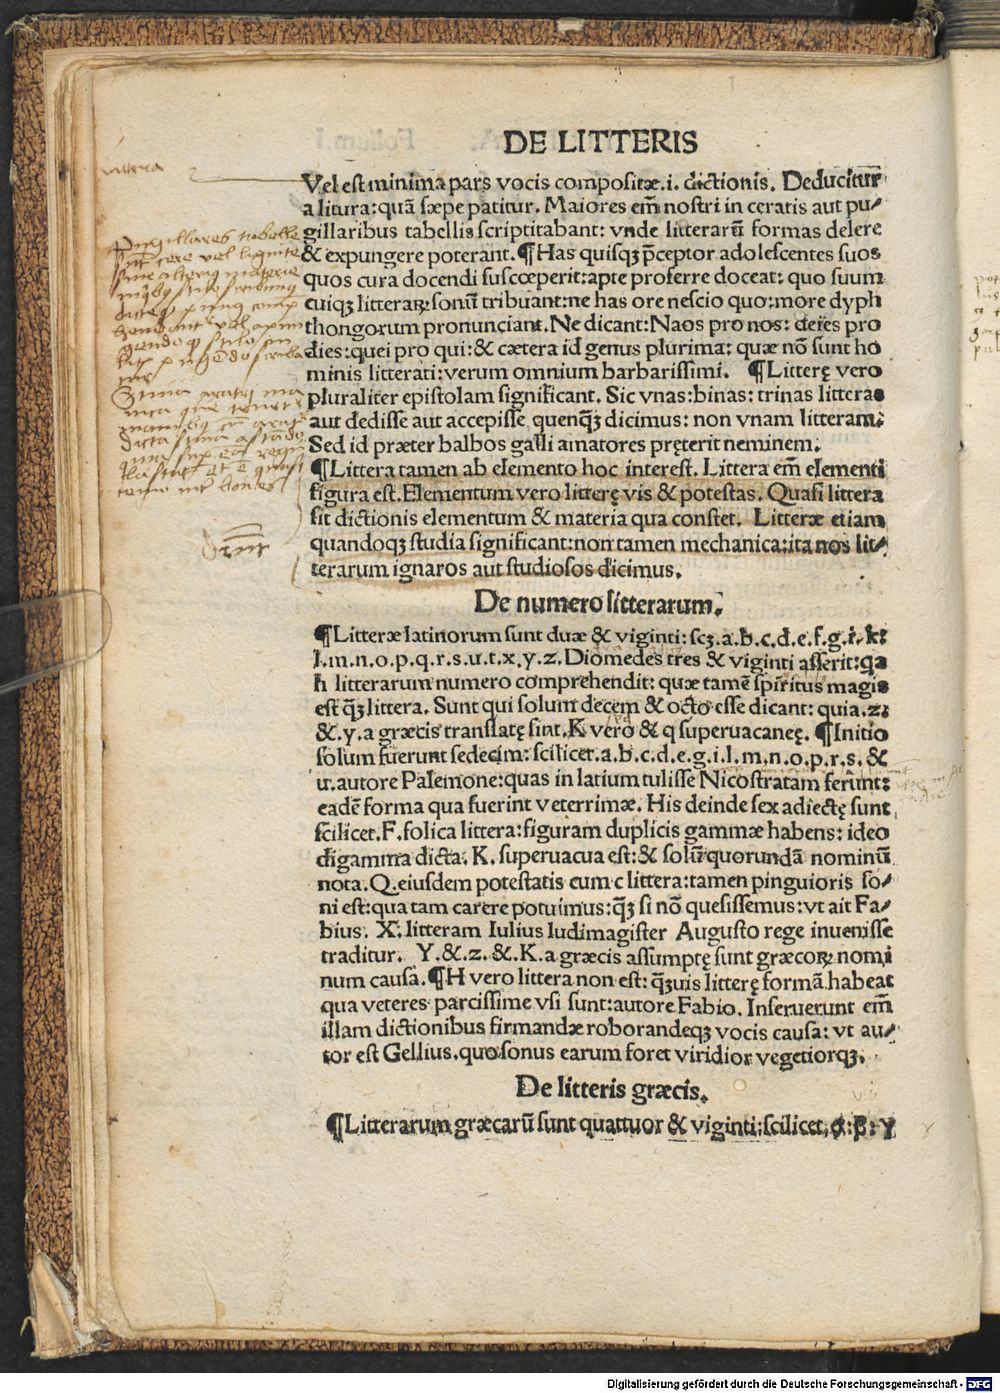 DE LITTERIS
Vel est minima pars vocis compositæ.i. dictionis. Deducitur
a litura:quā sæpe patitur. Maiores em̄ nostri in ceratis aut pu⸗
gillaribus tabellis scriptitabant: vnde litterarū formas delere
& expungere poterant. ¶ Has quisqꝫ p̄ceptor adolescentes suos
quos cura docendi suscœperit:apte proferre doceat: quo suum
cuiqꝫ litterarꝝ sonū tribuant:ne has ore nescio quo:more dyph
thongorum pronunciant. Ne dicant: Naos pro nos: deies pro
dies:quei pro qui:& cætera id genus plurima: quæ nō sunt ho
minis litterati:verum omnium barbarissimi. ¶Litterę vero
pluraliter epistolam significant. Sic vnas:binas: trinas litteras
aut dedisse aut accepisse quenqꝫ dicimus: non vnam litteram:
Sed id præter balbos galli amatores pręterit neminem.
¶Littera tamen ab elemento hoc interest. Littera em̄ elementi
figura est. Elementum vero litterę vis & potestas. Quasi littera
sit dictionis elementum & materia qua constet. Litteræ etiam
quandoqꝫ studia significant:non tamen mechanica:ita nos lit⸗
terarum ignaros aut studiosos dicimus.
De numero litterarum.
¶Litteræ latinorum sunt duæ & viginti: scꝫ.a.b.c.d.e.f.g.i.k:
l.m.n.o.p.q.r.s.u.t.x.y.z. Diomedes tres & viginti asserit:qa
h litterarum numero comprehendit: quæ tamē spiritus magis
est qꝫ littera. Sunt qui solum decem & octo esse dicant: quia.z:
&.y.a græcis translatę sint. K vero & q superuacaneę. ¶Initio
solum fuerunt sedecim: scilicet.a.b.c.d.e.g.i.l.m.n.o.p.r.s.&
u.autore Palemone:quas in latium tulisse Nicostratam ferunt:
eadē forma qua fuerint veterrimæ. His deinde sex adiectę sunt
scilicet.F.folica littera:figuram duplicis gammæ habens: ideo
digamma dicta. K. superuacua est:& solū quorundā nominū
nota. Q.eiusdem potestatis cum c littera:tamen pinguioris so⸗
ni est:qua tam carere potuimus:qꝫ si nō quesissemus:vt ait Fa⸗
bius. X. litteram Iulius ludimagister Augusto rege inuenisse
traditur. Y.&.z.&.K.a græcis assumptę sunt græcorꝝ nomi
num causa. ¶H vero littera non est: qꝫuis litterę formā habeat
qua veteres parcissime vsi sunt:autore Fabio. Inseruerunt em̄
illam dictionibus firmandæ roborandeqꝫ vocis causa: vt au⸗
tor est Gellius.quo sonus earum foret viridior vegetiorqꝫ.
De litteris græcis.
¶Litterarum græcarū sunt quattuor & viginti:scilicet.α:β:γ
Digitalisierung gefördert durch die Deutsche Forschungsgemeinschaft - DFG